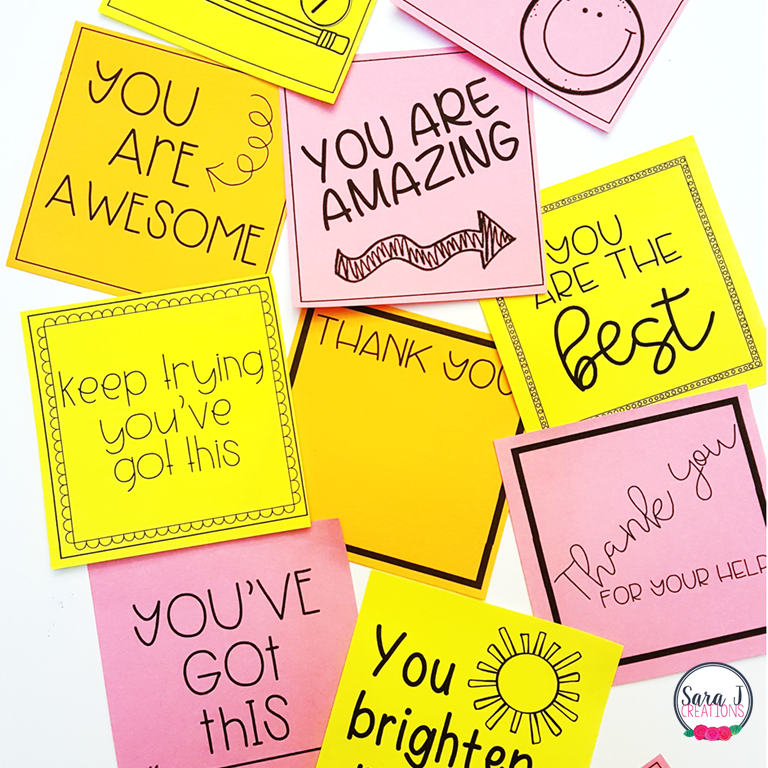 YOU
ARE
AWESOME
YOU ARE
AMAZING
YOU
ARE THE
best
keep trying
you've
got this
THANK YOU
Thank you
FOR YOUR HELP
YOU'VE
GOt
thIS
You
brighten
Sara J
CREATIONS